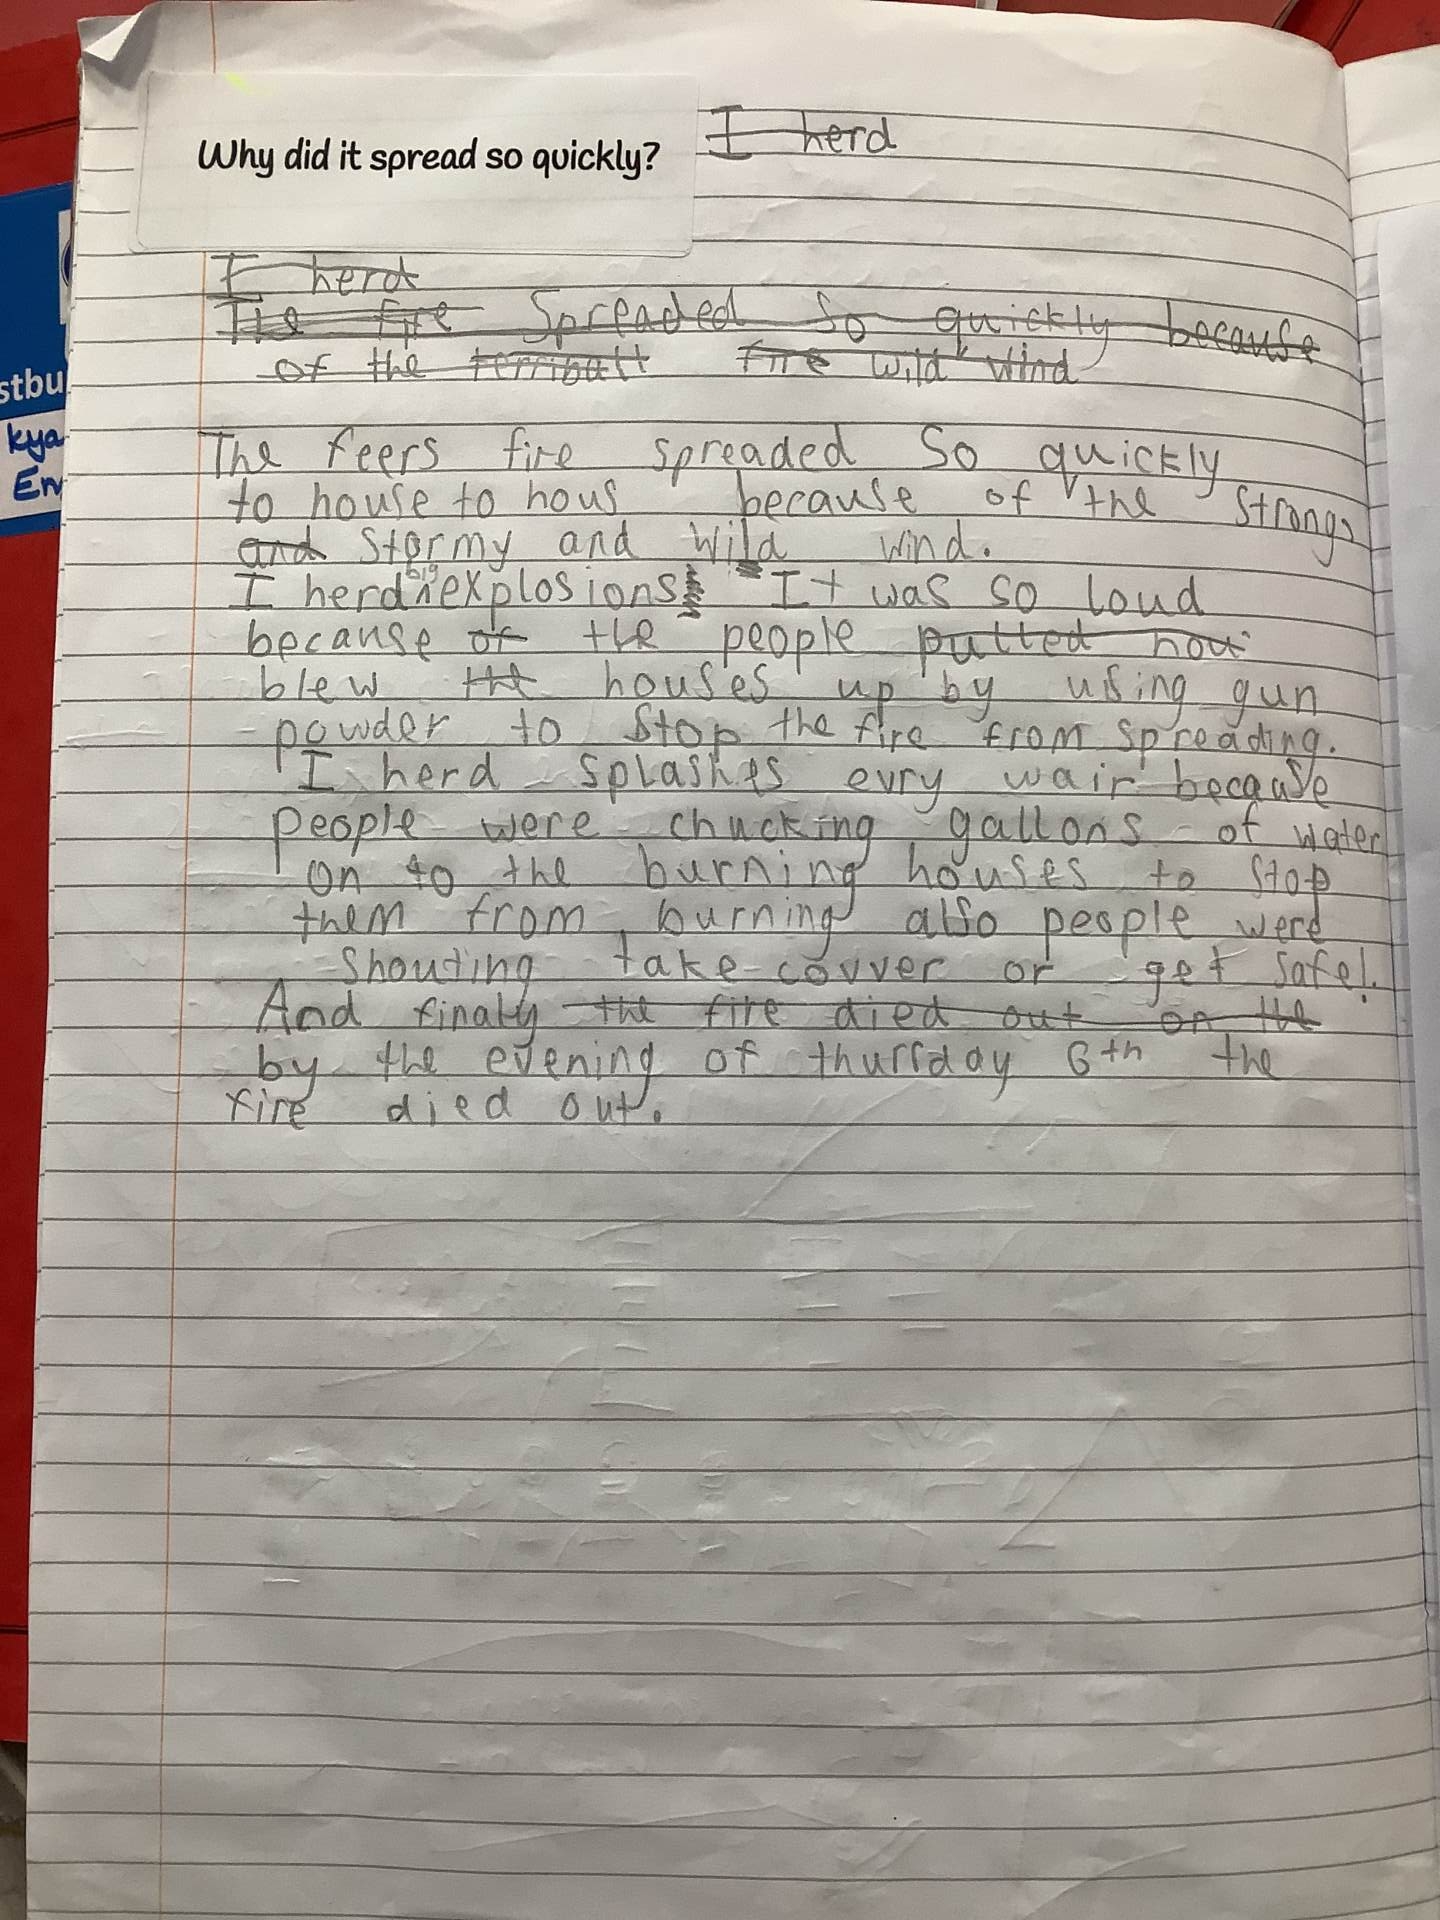 Why did it spread so quickly?
I herd
I herd
The fire Spreaded So quickly because
of the fire wild wind
The feers fire spreaded So quickly
to house to hous because of the strong,
and stormy and wild wind.
I herd big explosions It was so loud
because of the people putted
blew the houses up by using gun
powder to stop the fire from spreading.
I herd splashes evry wair because
people were chucking gallons of water
on to the burning houses to stop
them from burning also people were
shouting take covver or get safe!
And finaly the fire died out on the
by the evening of thursday 6th the
fire died out.
stbu
kya
En